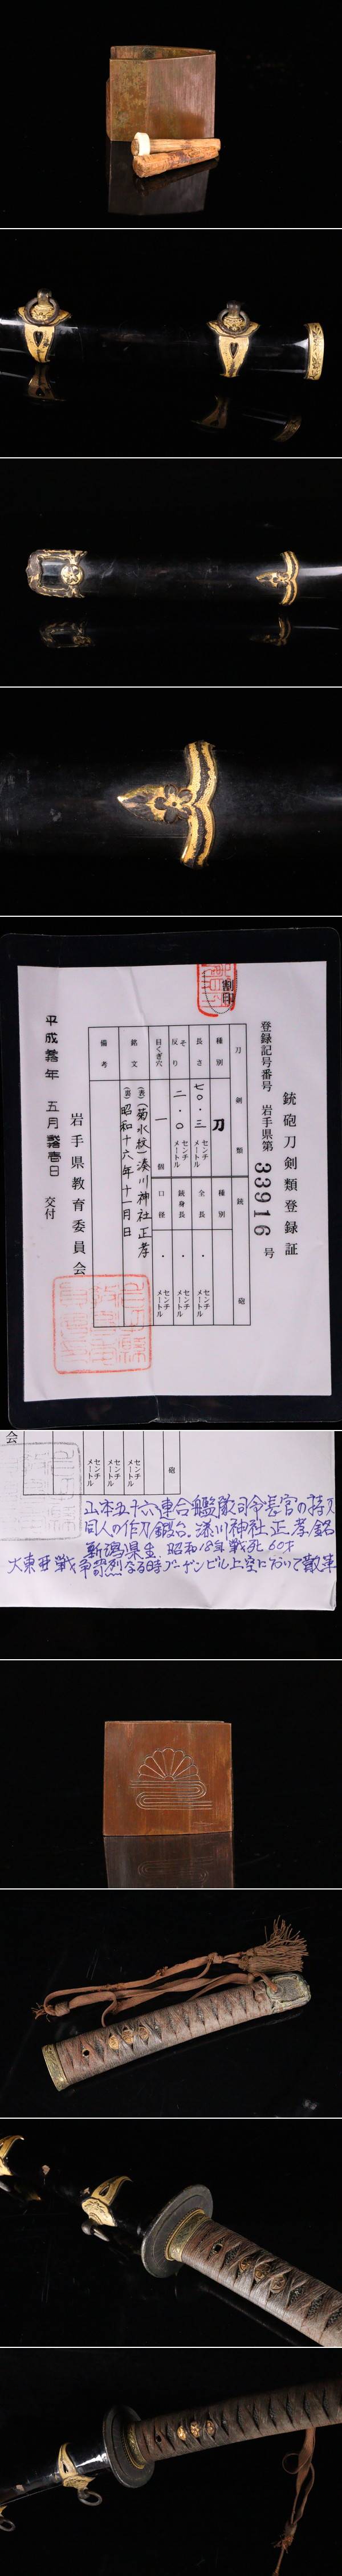 銃砲刀剣類登録証
登録記号番号 岩手県第 33916 号
刀剣類
銃砲
種別 刀
種別
長さ 七〇・三 センチメートル
全長 ・ センチメートル
そり 反り 二・〇 センチメートル
銃身長 ・ センチメートル
目くぎ穴 一 個
口径 ・ センチメートル
銘文 (表)(菊水紋)湊川神社正孝
(裏)昭和十六年十一月日
備考
岩手県教育委員会
平成 年 五月 日 交付
割印
会
センチメートル
センチメートル
センチメートル
砲
山本五十六連合艦隊司令長官の持刀
同人の作刀鍛台.湊川神社正孝銘
新潟県生 昭和18年戦死 60才
大東亜戦争苛烈なる時ブーゲンビル上空において散華